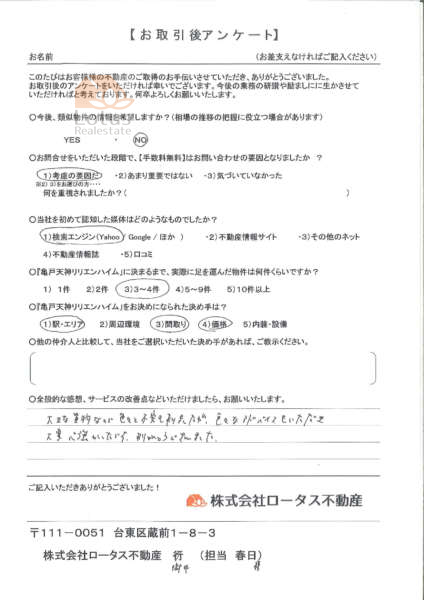 【お取引後アンケート】
お名前 (お差支えなければご記入ください)
このたびはお客様様の不動産のご取得のお手伝いさせていただき、ありがとうございました。
お取引後のアンケートをいただければ幸いでございます。今後の業務の研鑽や励ましにに生かさせて
いただければと考えております。何卒よろしくお願いいたします。
Lotus
Realestate
○今後、類似物件の情報を希望しますか？(相場の推移の把握に役立つ場合があります)
YES ・ NO
○お問合せをいただいた段階で、【手数料無料】はお問い合わせの要因となりましたか ？
1)考慮の要因だ ・2)あまり重要ではない ・3)気づいていなかった
※2) 3)をお選びの方・・・・
何を重視されましたか？( )
○当社を初めて認知した媒体はどのようなものでしたか？
1)検索エンジン(Yahoo / Google / ほか ) ・2)不動産情報サイト ・3)その他のネット
4)不動産情報誌 ・5)口コミ
○『亀戸天神リリエンハイム』に決まるまで、実際に足を運んだ物件は何件くらいですか？
1) 1件 2)2件 3)3～4件 4)5～9件 5)10件以上
○『亀戸天神リリエンハイム』をお決めになられた決め手は？
1)駅・エリア 2)周辺環境 3)間取り 4)価格 5)内装・設備
○他の仲介人と比較して、当社をご選択いただいた決め手があれば、ご教示ください。
○全般的な感想、サービスの改善点などいただけましたら、お願いいたします。
ご記入いただきありがとうございました！
株式会社ロータス不動産
〒111-0051 台東区蔵前1-8-3
株式会社ロータス不動産 行 (担当 春日)